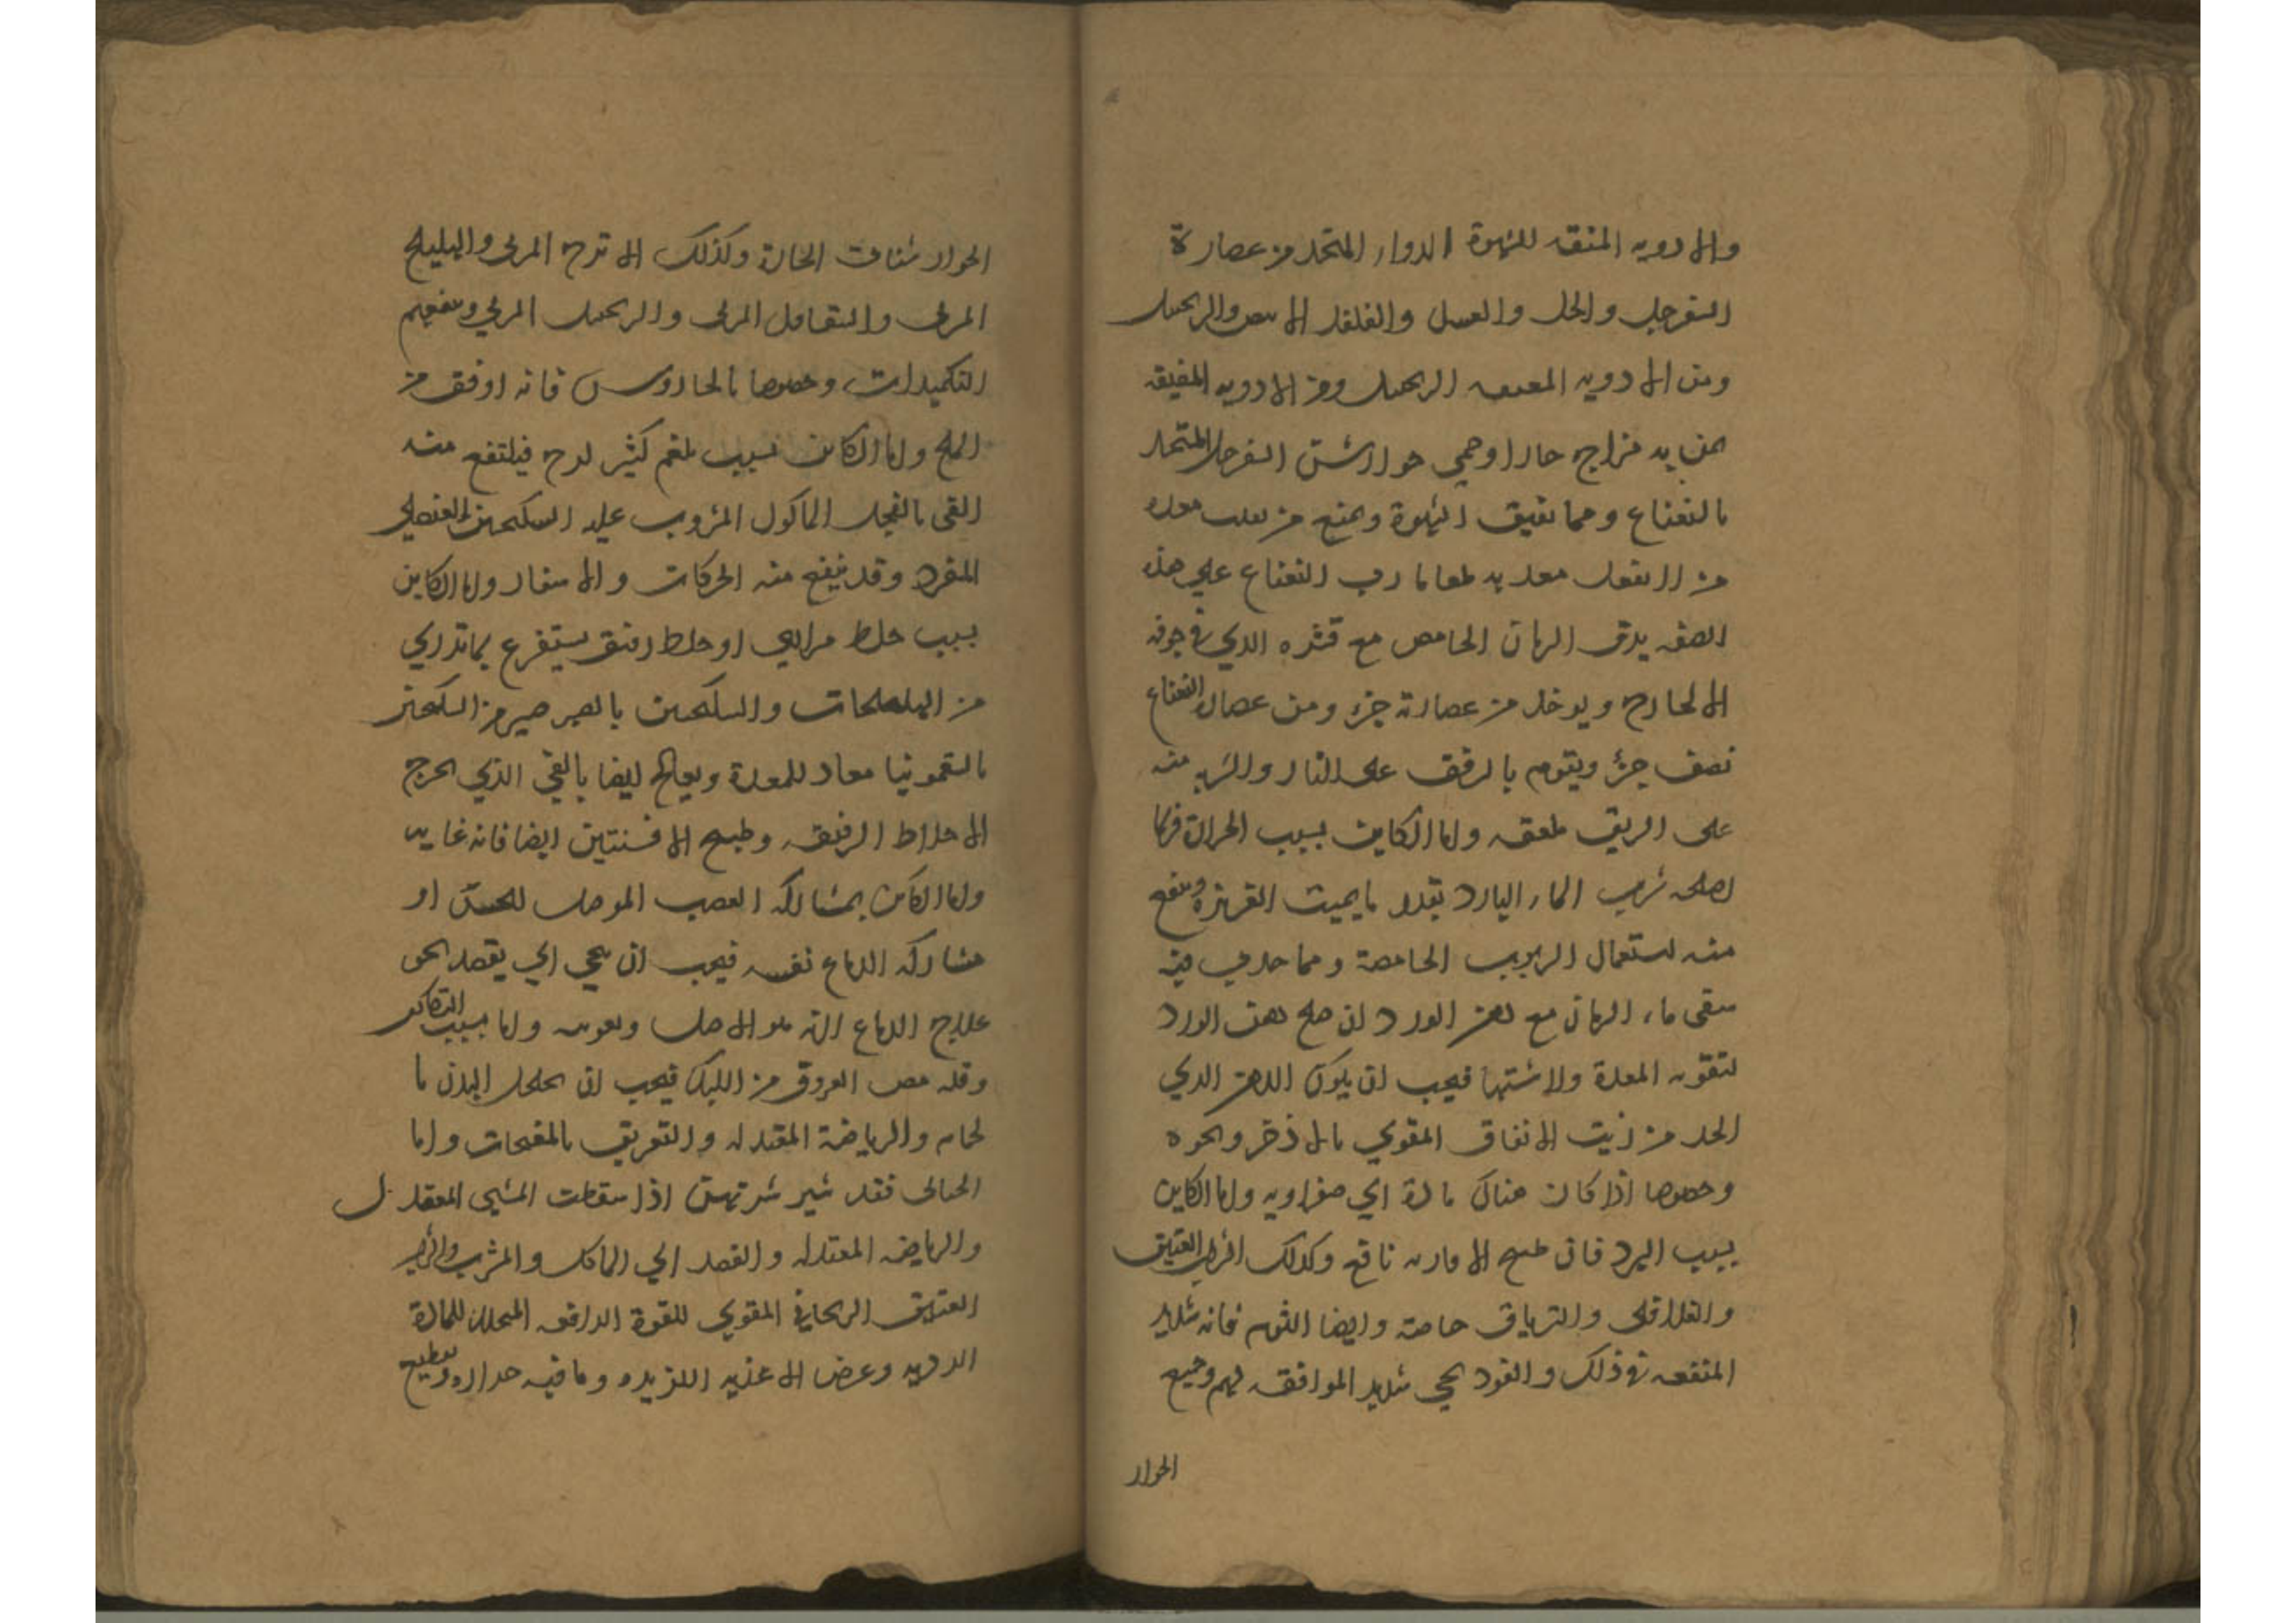 والادويه المنقه للشهوة الدواء المتخد من عصارة
السفرجل والخل والعسل والفلفل الابيض والزنجبيل
ومن الادويه الزنجبيل ومن الادويه المفيقه
لمن به مزاج حار او حمى جوارشن السفرجل المتخد
بالنعناع ومما تفيق الشهوة ويمنع من تقلب معده
من معد به طعاما رب النعناع على هذه
الصفه يدق الرمان الحامض مع قشره الدي في جوفه
الخارج ويوخد من عصارته جزء ومن عصارة النعناع
نصف جزؤ ويقوم بالرفق على النار والشربه منه
على الريق ملعقه واما الكاين بسبب الحرارة فربما
اصلحه شرب الماء البارد بقدر ما يميت الغريزه وينفع
منه استعمال الربوب الحامضة ومما جرب فيه
سقى ماء الرمان مع دهن الورد ان صلح دهن الورد
لتقويه المعدة ولا شتها فيجب ان يكون الدهن الدي
اتخد من زيت الانفاق المقوي بالاذخر ونحوه
وخصوصا اذا كان هناك مادة اي صفراويه واما الكاين
بسبب البرد فان طبيخ الافاويه نافع وكذلك الشراب العتيق
والفلافلى والترياق خاصة وايضا الثوم فانه شديد
المنفعه في ذلك والفودنجي شديد الموافقه لهم وجميع
الجوار
الجوارشنات الحارة وكذلك الاترج المربى والهليلج
المربى والشقاقل المربى والزنجبيل المربي وينفعهم
التكميدات وخصوصا بالجاورس فانه اوفق من
الملح واما الكاين بسبب بلغم كثير لزج فينتفع منه
القى بالفجل الماكول المشروب عليه السكنجبين العنصلي
المفرد وقد ينفع منه الحركات والاسفار واما الكاين
بسبب خلط مراري او خلط رقيق يستفرغ بما تدري
من الهليلجات والسكنجبين بالصبر خير من السكنجبين
بالسقمونيا معاد للمعدة ويعالج ايضا بالقي الذي يخرج
الاخلاط الرقيقه وطبيخ الافسنتين ايضا فانه غايه
واما الكاين بمشاركه العصب الموصل للحس او
مشاركه الدماغ نفسه فيجب ان ينحى الي يقصد نحو
علاج الدماغ الذ هو الاصل وتقويته واما بسبب التكاثف
وقله مص العروق من الكبد فيجب ان يخلخل البدن با
لحام والرياضة المعتدله والتعريق بالمفتحات واما
الحبالى فقد شير شهوتهن اذا سقطت المشي المعتدل
والرياضه المعتدله والقصد الي الماكل والمشرب والشراب
العتيق الريحاني المقوي للقوة الدافعه المحلله للمادة
الرديه وعرض الاغذيه اللذيذه وما فيه حراره وتقطيع